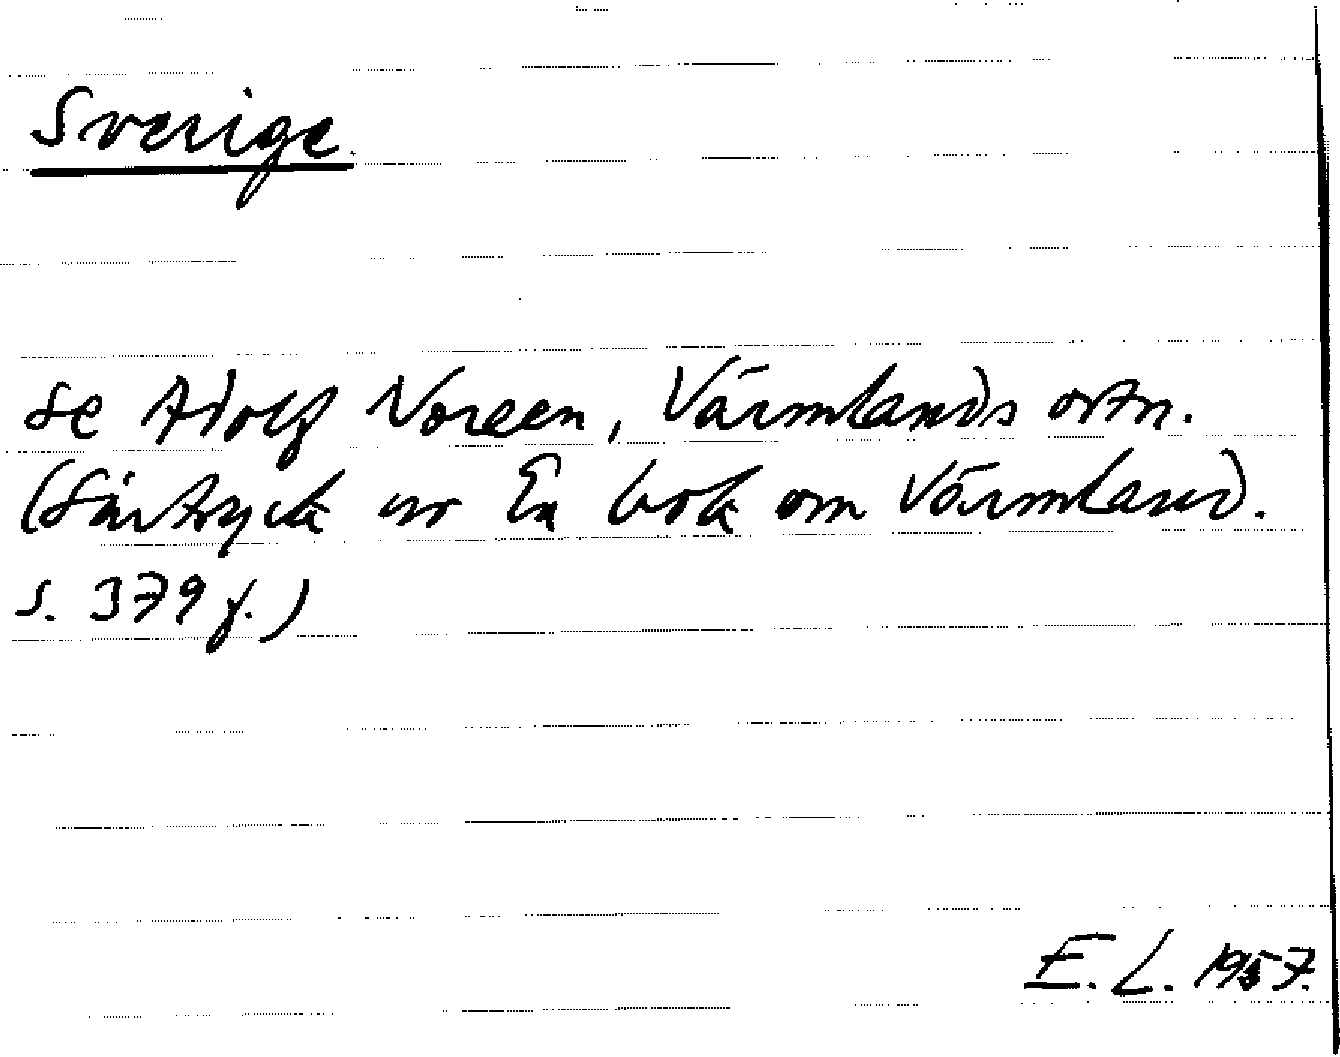 Sverige.
se Adolf Noreen, Värmlands ortn.
(Särtryck ur En bok om Värmland.
s. 379 f.)
E. L. 1957.